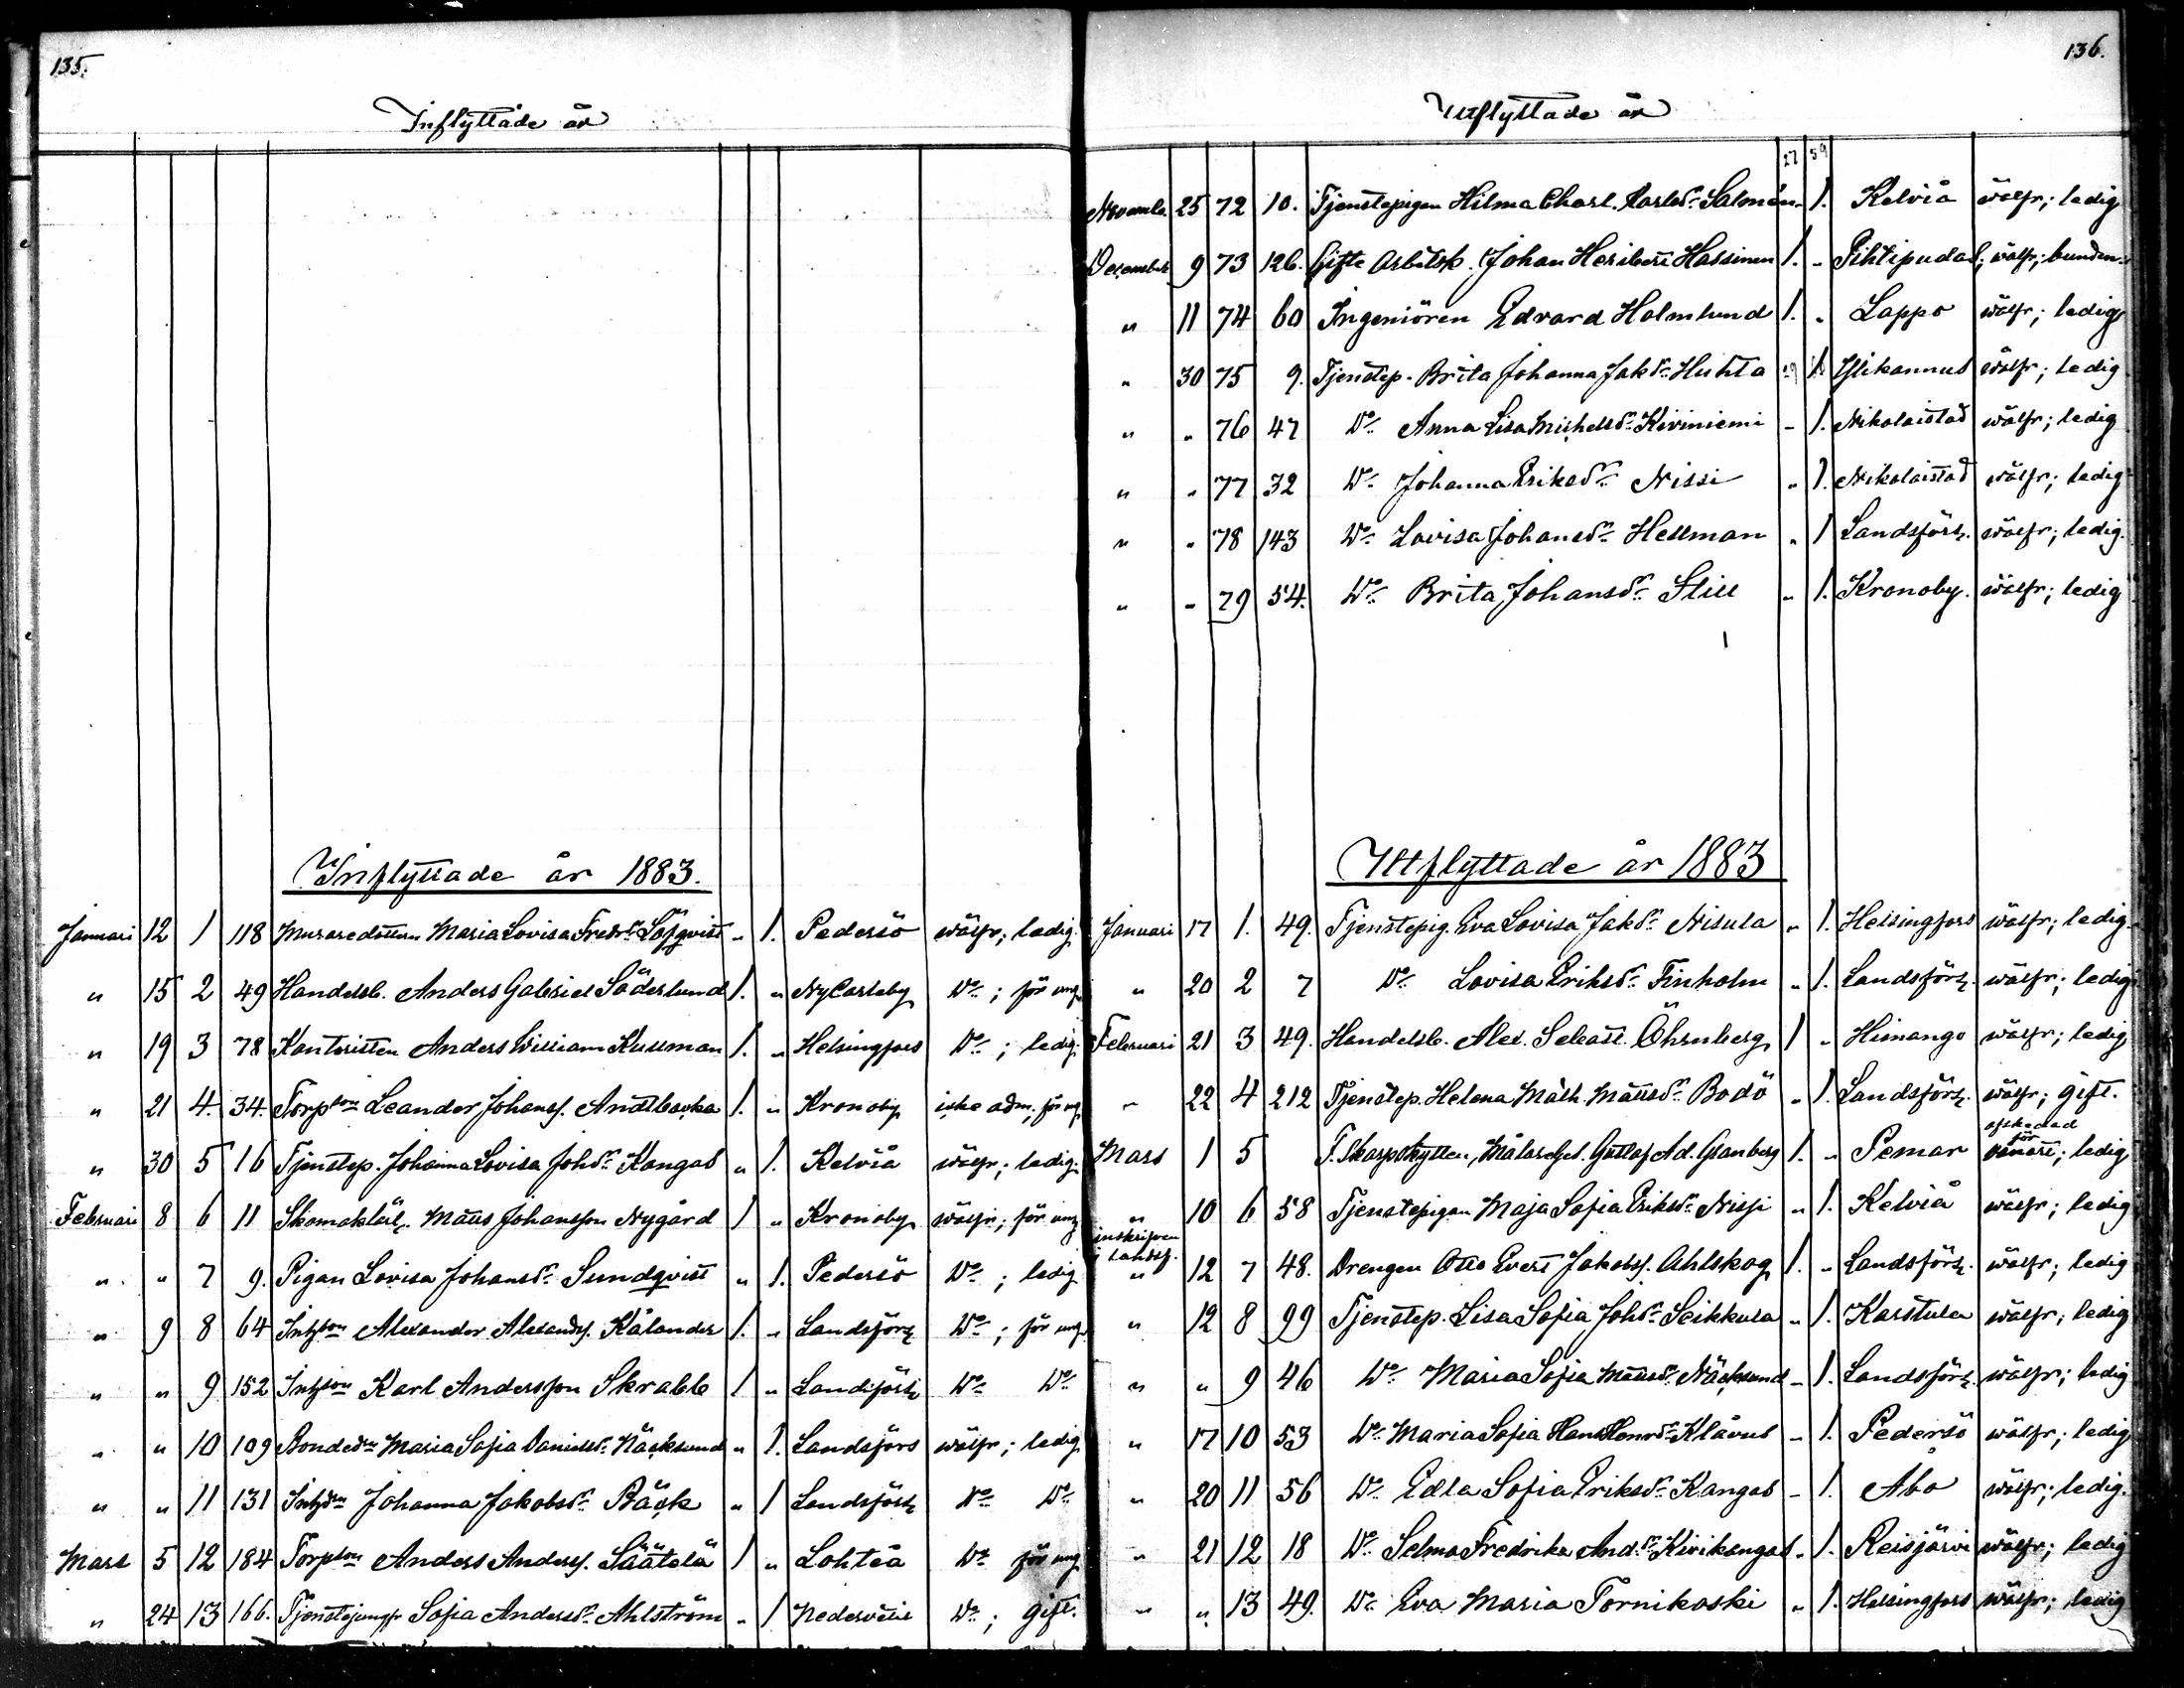 135.
Inflyttade år
Inflyttade år 1883.
Januari 12 1 118 Muraredottern Maria Lovisa Fredr.dr Löfqvist " 1. Pedersö wälfr; ledig.
" 15 2 49 Handelsb. Anders Gabriel Söderlund 1. " NyCarleby Do; för ung
" 19 3 78 Kontoristen Anders William Kullman 1. " Helsingfors Do; ledig.
" 21 4. 34. Torpson Leander Johanss. Andtbacka 1. " Kronoby icke adm; för ung
" 30 5 16 Tjenstep. Johanna Lovisa Johdr Kangas " 1. Kelviå wälfr; ledig.
Februari 8 6 11 Skomakl. Matts Johansson Nygård 1 " Kronoby wälfr; för ung
" " 7 9. Pigan Lovisa Johansdr Sundqvist " 1. Pedersö Do; ledig
" 9 8 64 Inhson Alexander Alexanders. Kålander 1. " Landsförs Do; för ung
" " 9 152 Inhson Karl Andersson Skrabb 1 " Landsförs Do Do
" " 10 109 Bondedr Maria Sofia Danielsdr Näcksund " 1. Landsförs wälfr; ledig
" " 11 131 Inhdr Johanna Jakobsdr Bäck " 1 Landsförs Do Do
Mars 5 12 184 Torpson Anders Anderss. Säätelä 1 " Lohteå Do för ung
" 24 13 166. Tjenstejungfr Sofia Andersdr Ahlström " 1 Nedervetil Do; gift.
136.
Utflyttade år
27 59
Novemb. 25 72 10. Tjenstepigan Hilma Charl. Karlsdr Salmén " 1. Kelviå wälfr; ledig
December 9 73 126. Gifte Arbetsk. Johan Heribert Hassinen 1. " Pihtipudas; wälfr; bunden.
" 11 74 60 Ingeniören Edvard Holmlund 1. " Lappo wälfr; ledig
" 30 75 9. Tjenstep. Brita Johanna Jakdr Huhta 1. Ylikannus wälfr; ledig
" " 76 47 Do Anna Lisa Michelsdr Kiviniemi - 1. Nikolaistad wälfr; ledig
" " 77 32 Do Johanna Eriksdr Nissi " 1. Nikolaistad wälfr; ledig
" " 78 143 Do Lovisa Johansdr Hellman " 1 Landsförs. wälfr; ledig.
" " 79 54. Do Brita Johansdr Still " 1. Kronoby. wälfr; ledig
Utflyttade år 1883
Januari 17 1. 49. Tjenstepig. Eva Lovisa Jakdr Nisula " 1. Helsingfors wälfr; ledig.
" 20 2 7 Do Lovisa Eriksdr Finholm " 1. Landsförs. wälfr; ledig
Februari 21 3 49. Handelsb. Alex. Sebast. Öhrnberg 1 " Himango wälfr; ledig
" 22 4 212 Tjenstep. Helena Math. Mattsdr Bodö " 1. Landsförs. wälfr; gift.
Mars 1 5 F. Skarpskytten, Målareges. Gustaf Ad. Granberg 1. " Pemar afskedad för ; ledig
" 10 6 58 Tjenstepigan Maja Sofia Eriksdr Nissi " 1. Kelviå wälfr; ledig
inskrifven i Landsf.
" 12 7 48. Drengen Otto Evert Jakobss. Ahlskog 1. " Landsförs. wälfr; ledig
" 12 8 99 Tjenstep. Lisa Sofia Johdr Seikkula " 1. Karstula wälfr; ledig
" " 9 46 Do Maria Sofia Mattsdr Näcksund " 1. Landsförs. wälfr; ledig
" 17 10 53 Do Maria Sofia Hans Henrdr Klåvus - 1. Pedersö wälfr; ledig
" 20 11 56 Do Edla Sofia Eriksdr Kangas - 1. Åbo wälfr; ledig.
" 21 12 18 Do Selma Fredrika And.dr Kivikangas " 1. Reisjärvi wälfr; ledig
" " 13 49. Do Eva Maria Tornikoski " 1. Helsingfors wälfr; ledig